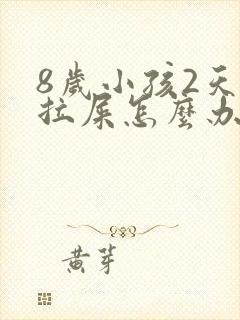 8歲小孩2天
拉屎怎麼办
黄芽